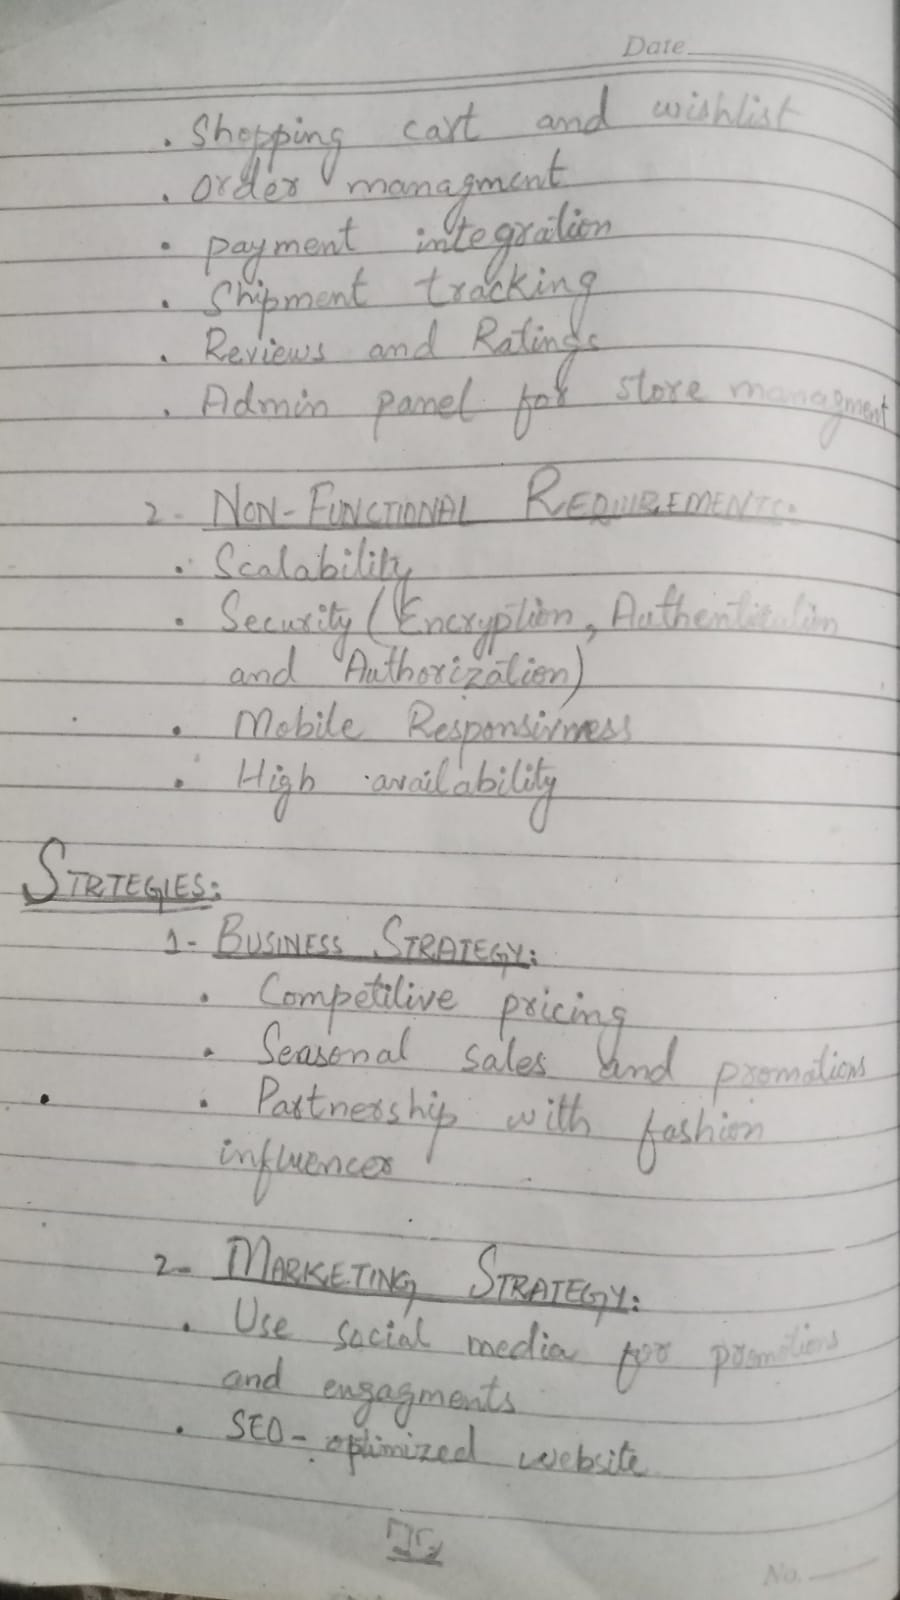 Date
. Shopping cart and wishlist
. Order managment
. payment integration
. Shipment tracking
. Reviews and Ratings
. Admin panel for store managment
2- NON-FUNCTIONAL REQUIREMENTS:
. Scalability
. Security (Encryption, Authentication
and Authorization)
. Mobile Responsivness
. High availability
STRTEGIES:
1- BUSINESS STRATEGY:
. Competitive pricing
. Seasonal sales and promotions
. Partnership with fashion
influencer
2- MARKETING STRATEGY:
. Use social media for promotions
and engagments
. SEO-optimized website
No.